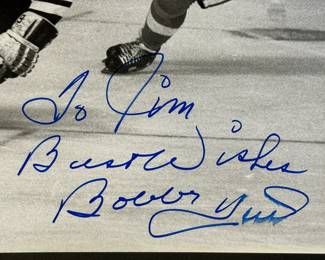 To Jim
Best Wishes
Bobby